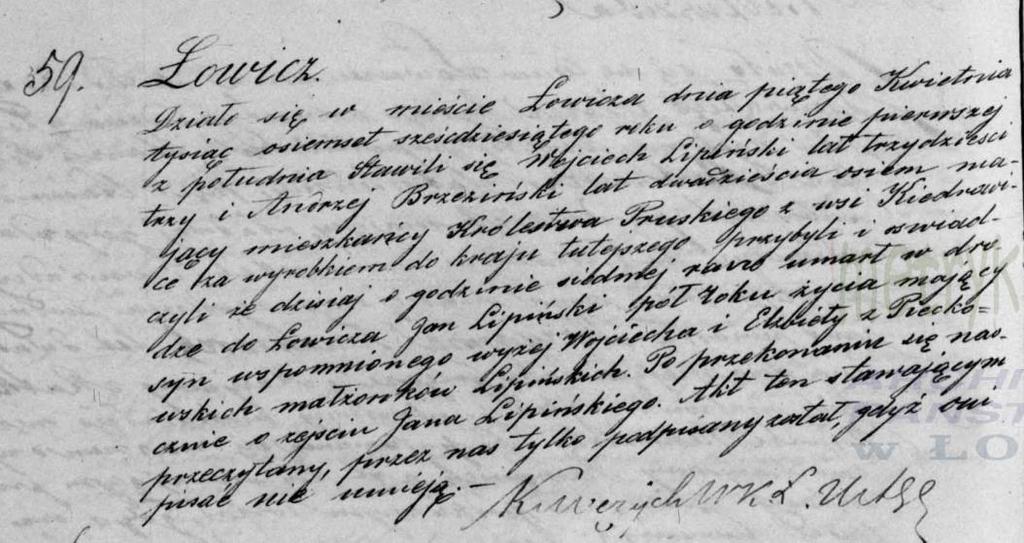 59. Łowicz.
Działo się w mieście Łowiczu dnia piątego Kwietnia
tysiąc osiemset sześćdziesiątego roku o godzinie pierwszej
z południa Stawili się Wojciech Lipiński lat trzydzieści
trzy i Andrzej Brzeziński lat dwadzieścia osiem ma-
jący mieszkańcy Królestwa Pruskiego z wsi Kiedrowi-
ce za wyrobkiem do kraju tutejszego przybyli i oswiad-
czyli że dzisiaj o godzinie siódmej rano umarł w dro
dze do Łowicza Jan Lipiński pół roku życia mający
syn wspomnionego wyżej Wojciecha i Elżbiety z Piecko-
wskich małżonków Lipińskich. Po przekonaniu się nao-
cznie o zejściu Jana Lipińskiego. Akt ten stawającym
przeczytany, przez nas tylko podpisany został, gdyż oni
pisac nie umieją. —
W K Ł.
ARCHI
PAŃST
W ŁO